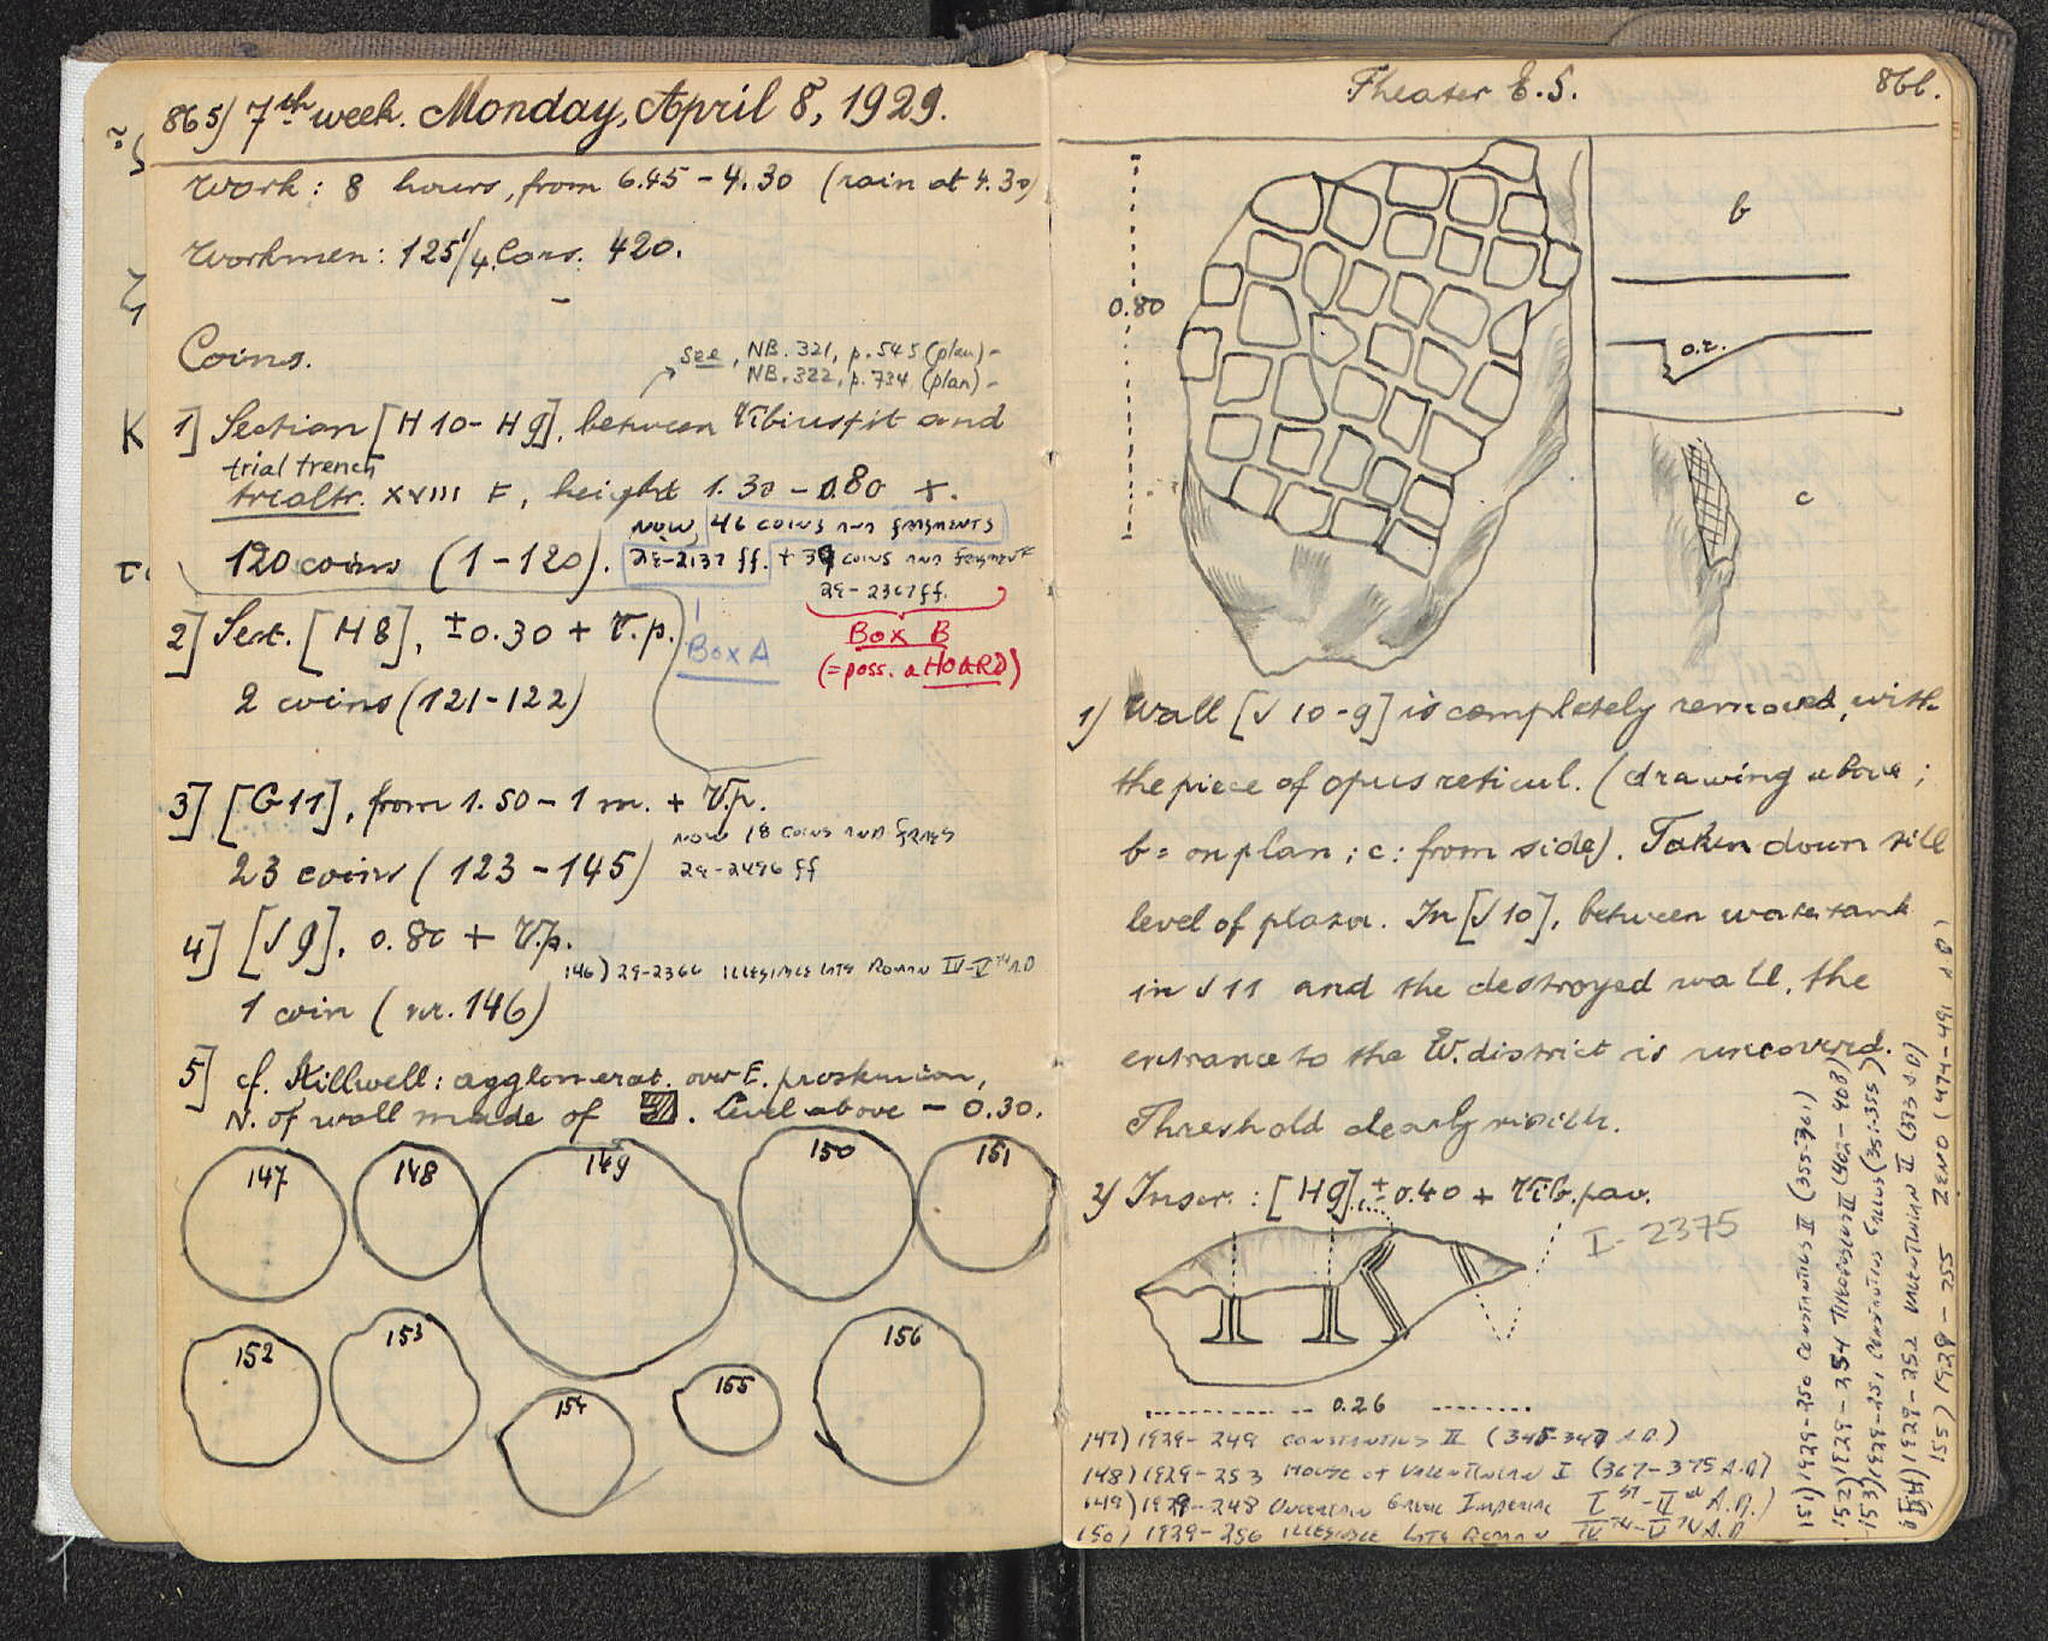 865) 7th week. Monday, April 8, 1929.
Work: 8 hours, from 6.45 - 4.30 (rain at 4.30)
Workmen: 125 1/4. Cars. 420.
Coins.
see, NB. 321, p. 545 (plan) -
NB. 322, p. 734 (plan) -
1] Section [H 10 - H 9], between and
trial trench
trialtr. XVIII F, height 1.30 - 0.80 +.
120 coins (1-120).
NOW 46 COINS AND FRAGMENTS
29-2137 ff. + 39 COINS AND FRAGMENT
29-2367 ff.
Box A
Box B
(= poss. a HOARD)
2] Sect. [H 8], ±0.30 + V.p.
2 coins (121-122)
3] [G 11], from 1.50 - 1 m. + V.p.
NOW 18 COINS AND FRAGS
23 coins (123 - 145)
29-2496 ff
4] [J 9], 0.80 + V.p.
146) 29-2366 ILLEGIBLE LATE ROMAN IV-VTH A.D
1 coin (nr. 146)
5] cf. Stillwell: agglomerat. over E. proskenion,
N. of wall made of . Level above - 0.30.
147 148 149 150 151
152 153 154 155 156
Theater E.S. 866.
0.80
b
o.r.
c
1) Wall [J 10-9] is completely removed, with
the piece of opus reticul. (drawing above;
b = on plan; c: from side). Taken down till
level of plaza. In [J 10], between watertank
in J 11 and the destroyed wall, the
entrance to the W. district is uncoverd.
Threshold clearly visible.
2) Inscr.: [H 9], ±0.40 + Vib. pav.
I-2375
0.26
147) 1929-249 CONSTANTIUS II (345-347 A.D.)
148) 1929-253 HOUSE OF VALENTINIAN I (367-375 A.D)
149) 1929-248 UNCERTAIN GREEK IMPERIAL IST-IInd A.D.)
150) 1929-256 ILLEGIBLE LATE ROMAN IVTH-VTH A.D
151) 1929-250 CONSTANTIUS II (355-361)
152) 1929-254 THEODOSIUS II (402-408)
153) 1929-251 CONSTANTIUS GALLUS (351-355)
154) 1929-252 VALENTINIAN II (383 A.D)
155) 1929-255 ZENO (474-491 A.D)